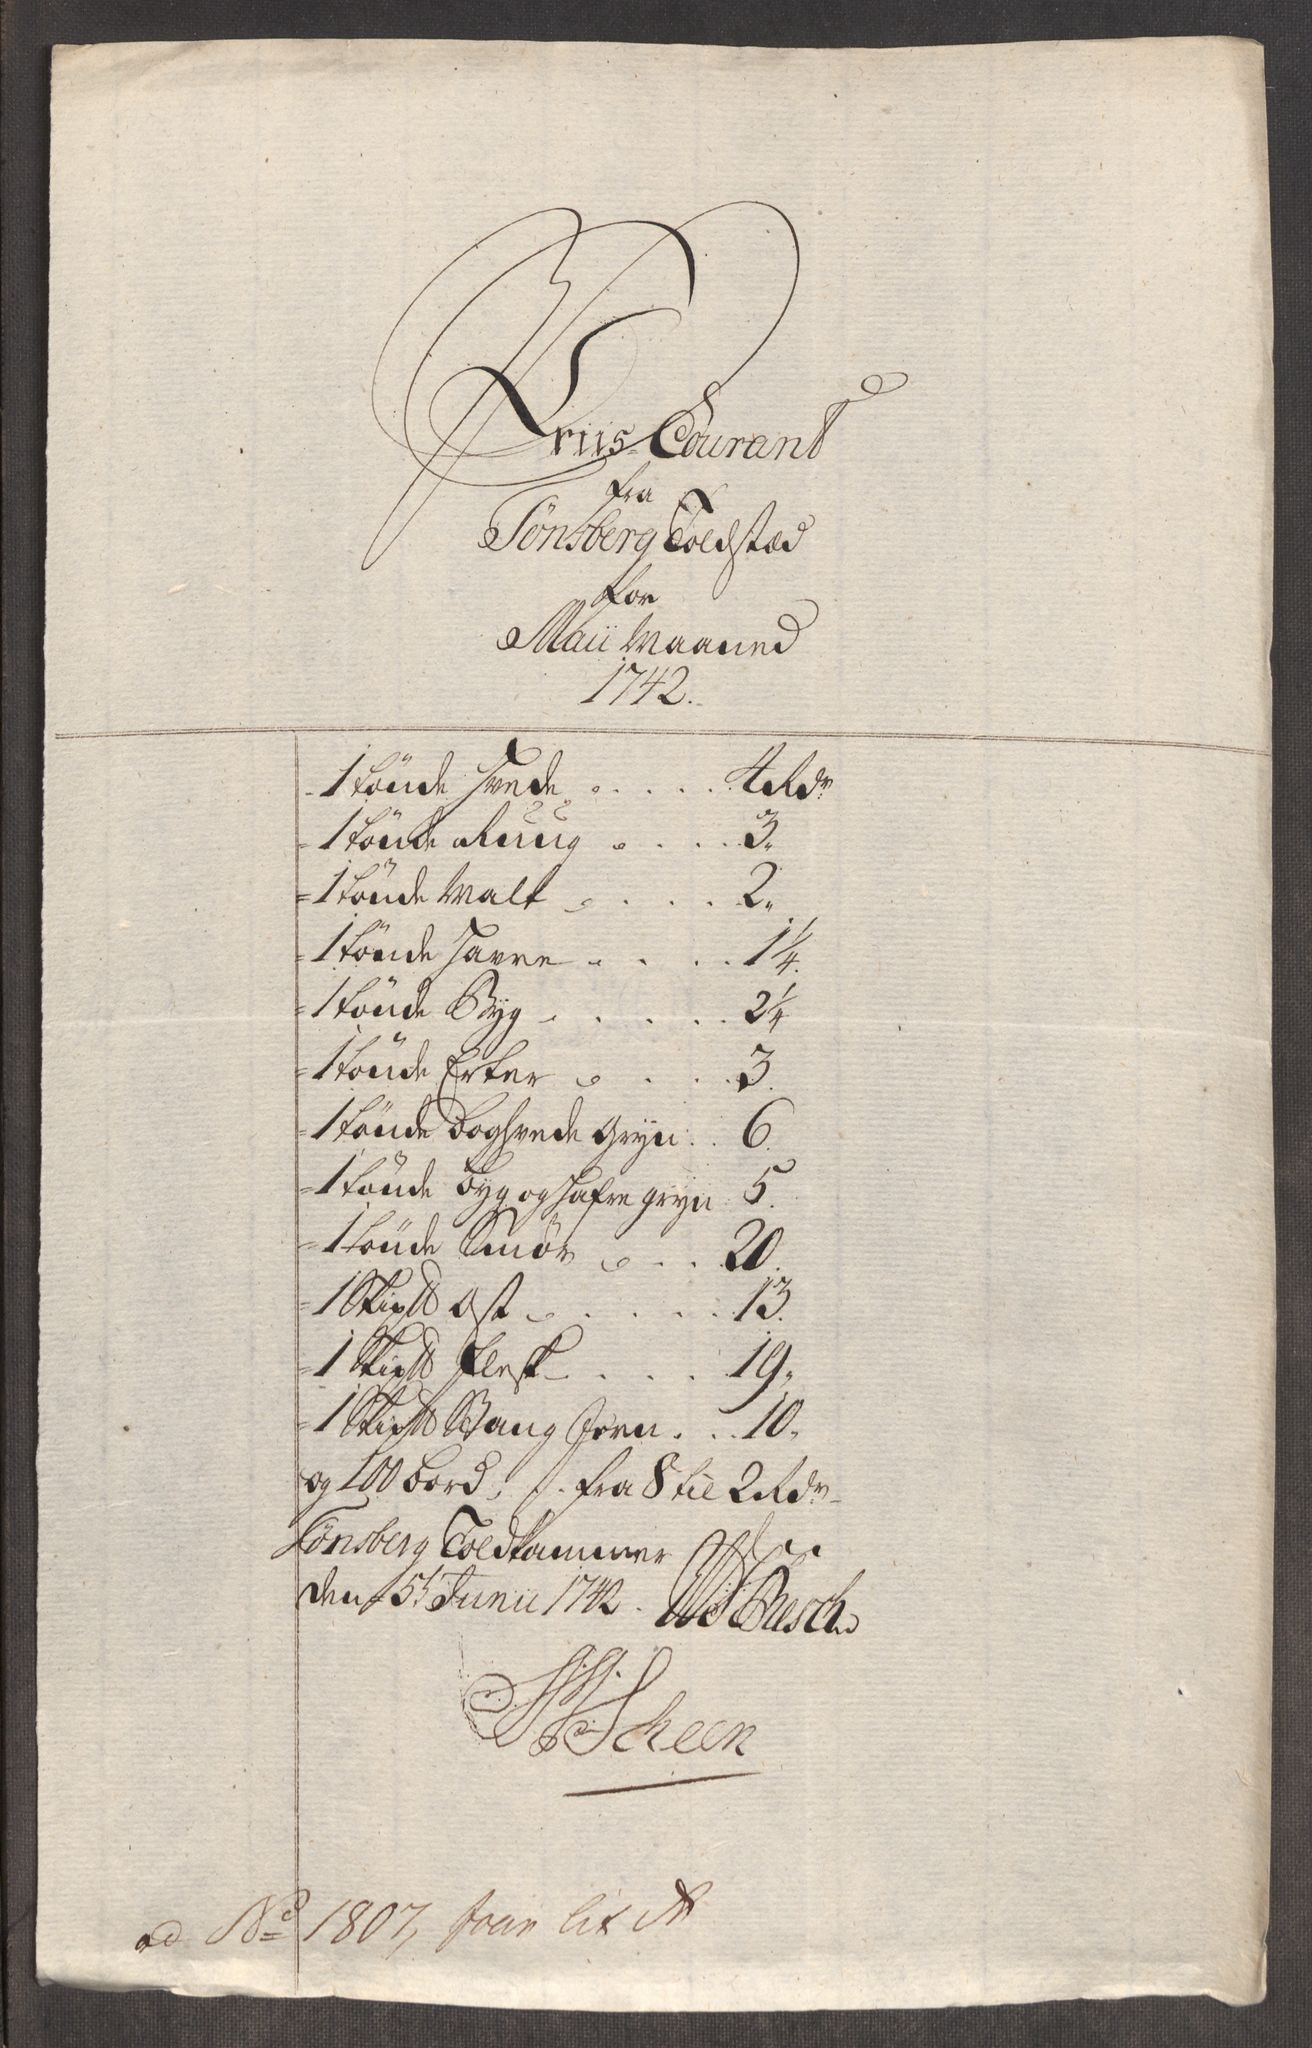 Priis-Courant
fra
Tönsberg Toldstæd
for
Maii Maaned
1742.
1 tönde Hvede . . . . 4 Rdr
1 tönde Ruug . . . . 3.
1 tönde Malt . . . . 2.
1 tönde Havre . . . . 1 1/4.
1 tönde Byg . . . . . 2 1/4
1 tönde Erter . . . . 3.
1 tönde Boghvede Gryn . . 6.
1 tönde Byg og Hafre gryn 5.
1 tönde Smör . . . 20.
1 Skip℔ Ost . . . . . 13.
1 Skip℔ Flesk . . . . 19.
1 Skip℔ Stang Jern . . . 10.
og 100 bord, . fra 8 til 2 Rdr
Tönsberg Toldkammer
den 5t Junii 1742. Büsch
Scheen
ad No 1807, lit A